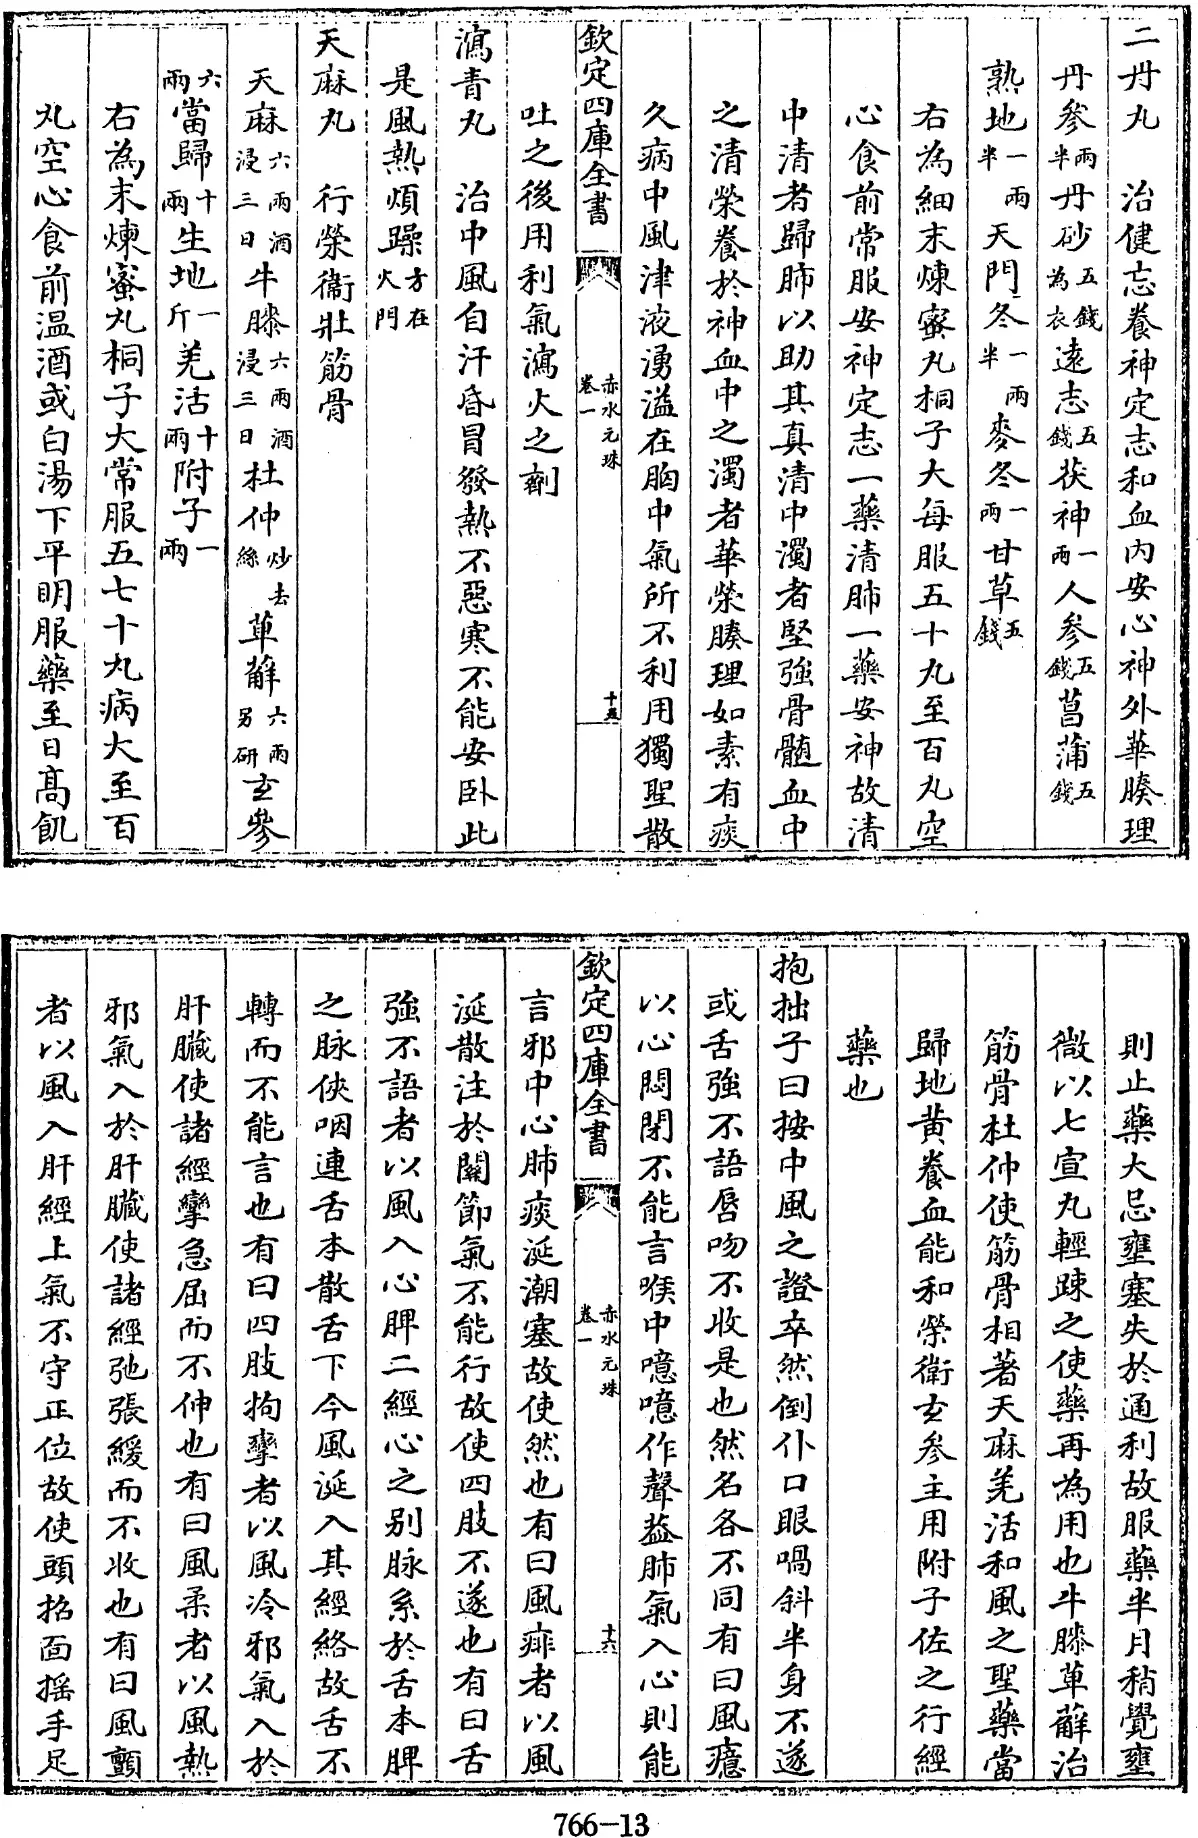 二丹丸　治健忘養神定志和血内安心神外華腠理
丹參兩半丹砂五錢為衣遠志五錢茯神一兩人參五錢菖蒲五錢
熟地一兩半天門冬一兩半麥冬一兩甘草五錢
右為細末煉蜜丸桐子大每服五十丸至百丸空
心食前常服安神定志一藥清肺一藥安神故清
中清者歸肺以助其真清中濁者堅強骨髓血中
之清榮養於神血中之濁者華榮腠理如素有痰
久病中風津液湧溢在胸中氣所不利用獨聖散
欽定四庫全書　赤水元珠卷一　十五
吐之後用利氣瀉火之劑
瀉青丸　治中風自汗昏冒發熱不惡寒不能安卧此
是風熱煩躁方在火門
天麻丸　行榮衞壯筋骨
天麻六兩酒浸三日牛膝六兩酒浸三日杜仲炒去絲萆薢六兩另研玄參
六兩當歸十兩生地一斤羌活十兩附子一兩
右為末煉蜜丸桐子大常服五七十丸病大至百
丸空心食前温酒或白湯下平明服藥至日髙飢
則止藥大忌壅塞失於通利故服藥半月稍覺壅
微以七宣丸輕踈之使藥再為用也牛膝萆薢治
筋骨杜仲使筋骨相著天麻羌活和風之聖藥當
歸地黄養血能和榮衛玄參主用附子佐之行經
藥也
抱拙子曰按中風之證卒然倒仆口眼喎斜半身不遂
或舌強不語唇吻不收是也然名各不同有曰風癔
以心悶閉不能言喉中噫噫作聲葢肺氣入心則能
欽定四庫全書　赤水元珠卷一　十六
言邪中心肺痰涎潮塞故使然也有曰風痱者以風
涎散注於關節氣不能行故使四肢不遂也有曰舌
強不語者以風入心脾二經心之别脉系於舌本脾
之脉俠咽連舌本散舌下今風涎入其經絡故舌不
轉而不能言也有曰四肢拘攣者以風冷邪氣入於
肝臟使諸經攣急屈而不伸也有曰風柔者以風熱
邪氣入於肝臟使諸經弛張緩而不收也有曰風顫
者以風入肝經上氣不守正位故使頭招面摇手足
766-13